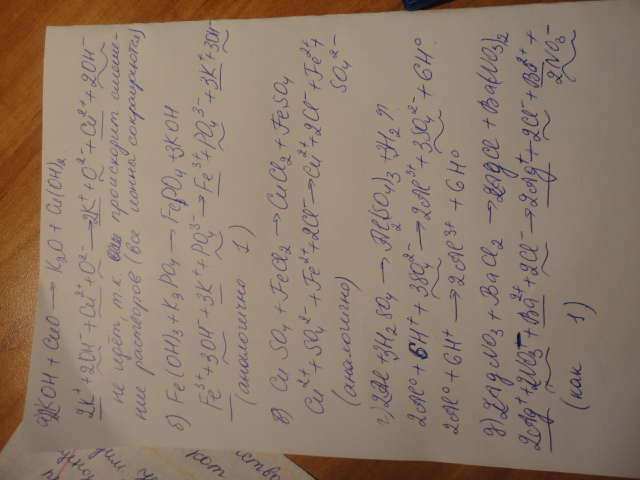 а) 2KOH + CuO → K₂O + Cu(OH)₂
2K⁺ + 2OH⁻ + Cu²⁺ + O²⁻ → 2K⁺ + O²⁻ + Cu²⁺ + 2OH⁻
не идёт т.к. происходит смеше-
ние растворов (все ионы сокращаются)
б) Fe(OH)₃ + K₃PO₄ → FePO₄ + 3KOH
Fe³⁺ + 3OH⁻ + 3K⁺ + PO₄³⁻ → Fe³⁺ + PO₄³⁻ + 3K⁺ + 3OH⁻
(аналогично 1)
в) CuSO₄ + FeCl₂ → CuCl₂ + FeSO₄
Cu²⁺ + SO₄²⁻ + Fe²⁺ + 2Cl⁻ → Cu²⁺ + 2Cl⁻ + Fe²⁺
SO₄²⁻
(аналогично)
г) 2Al + 3H₂SO₄ → Al₂(SO₄)₃ + 3H₂↑
2Al⁰ + 6H⁺ + 3SO₄²⁻ → 2Al³⁺ + 3SO₄²⁻ + 6H⁰
2Al⁰ + 6H⁺ → 2Al³⁺ + 6H⁰
д) 2AgNO₃ + BaCl₂ → 2AgCl + Ba(NO₃)₂
2Ag⁺ + 2NO₃⁻ + Ba²⁺ + 2Cl⁻ → 2Ag⁺ + 2Cl⁻ + Ba²⁺ +
2NO₃⁻
(как 1)
кот
ство